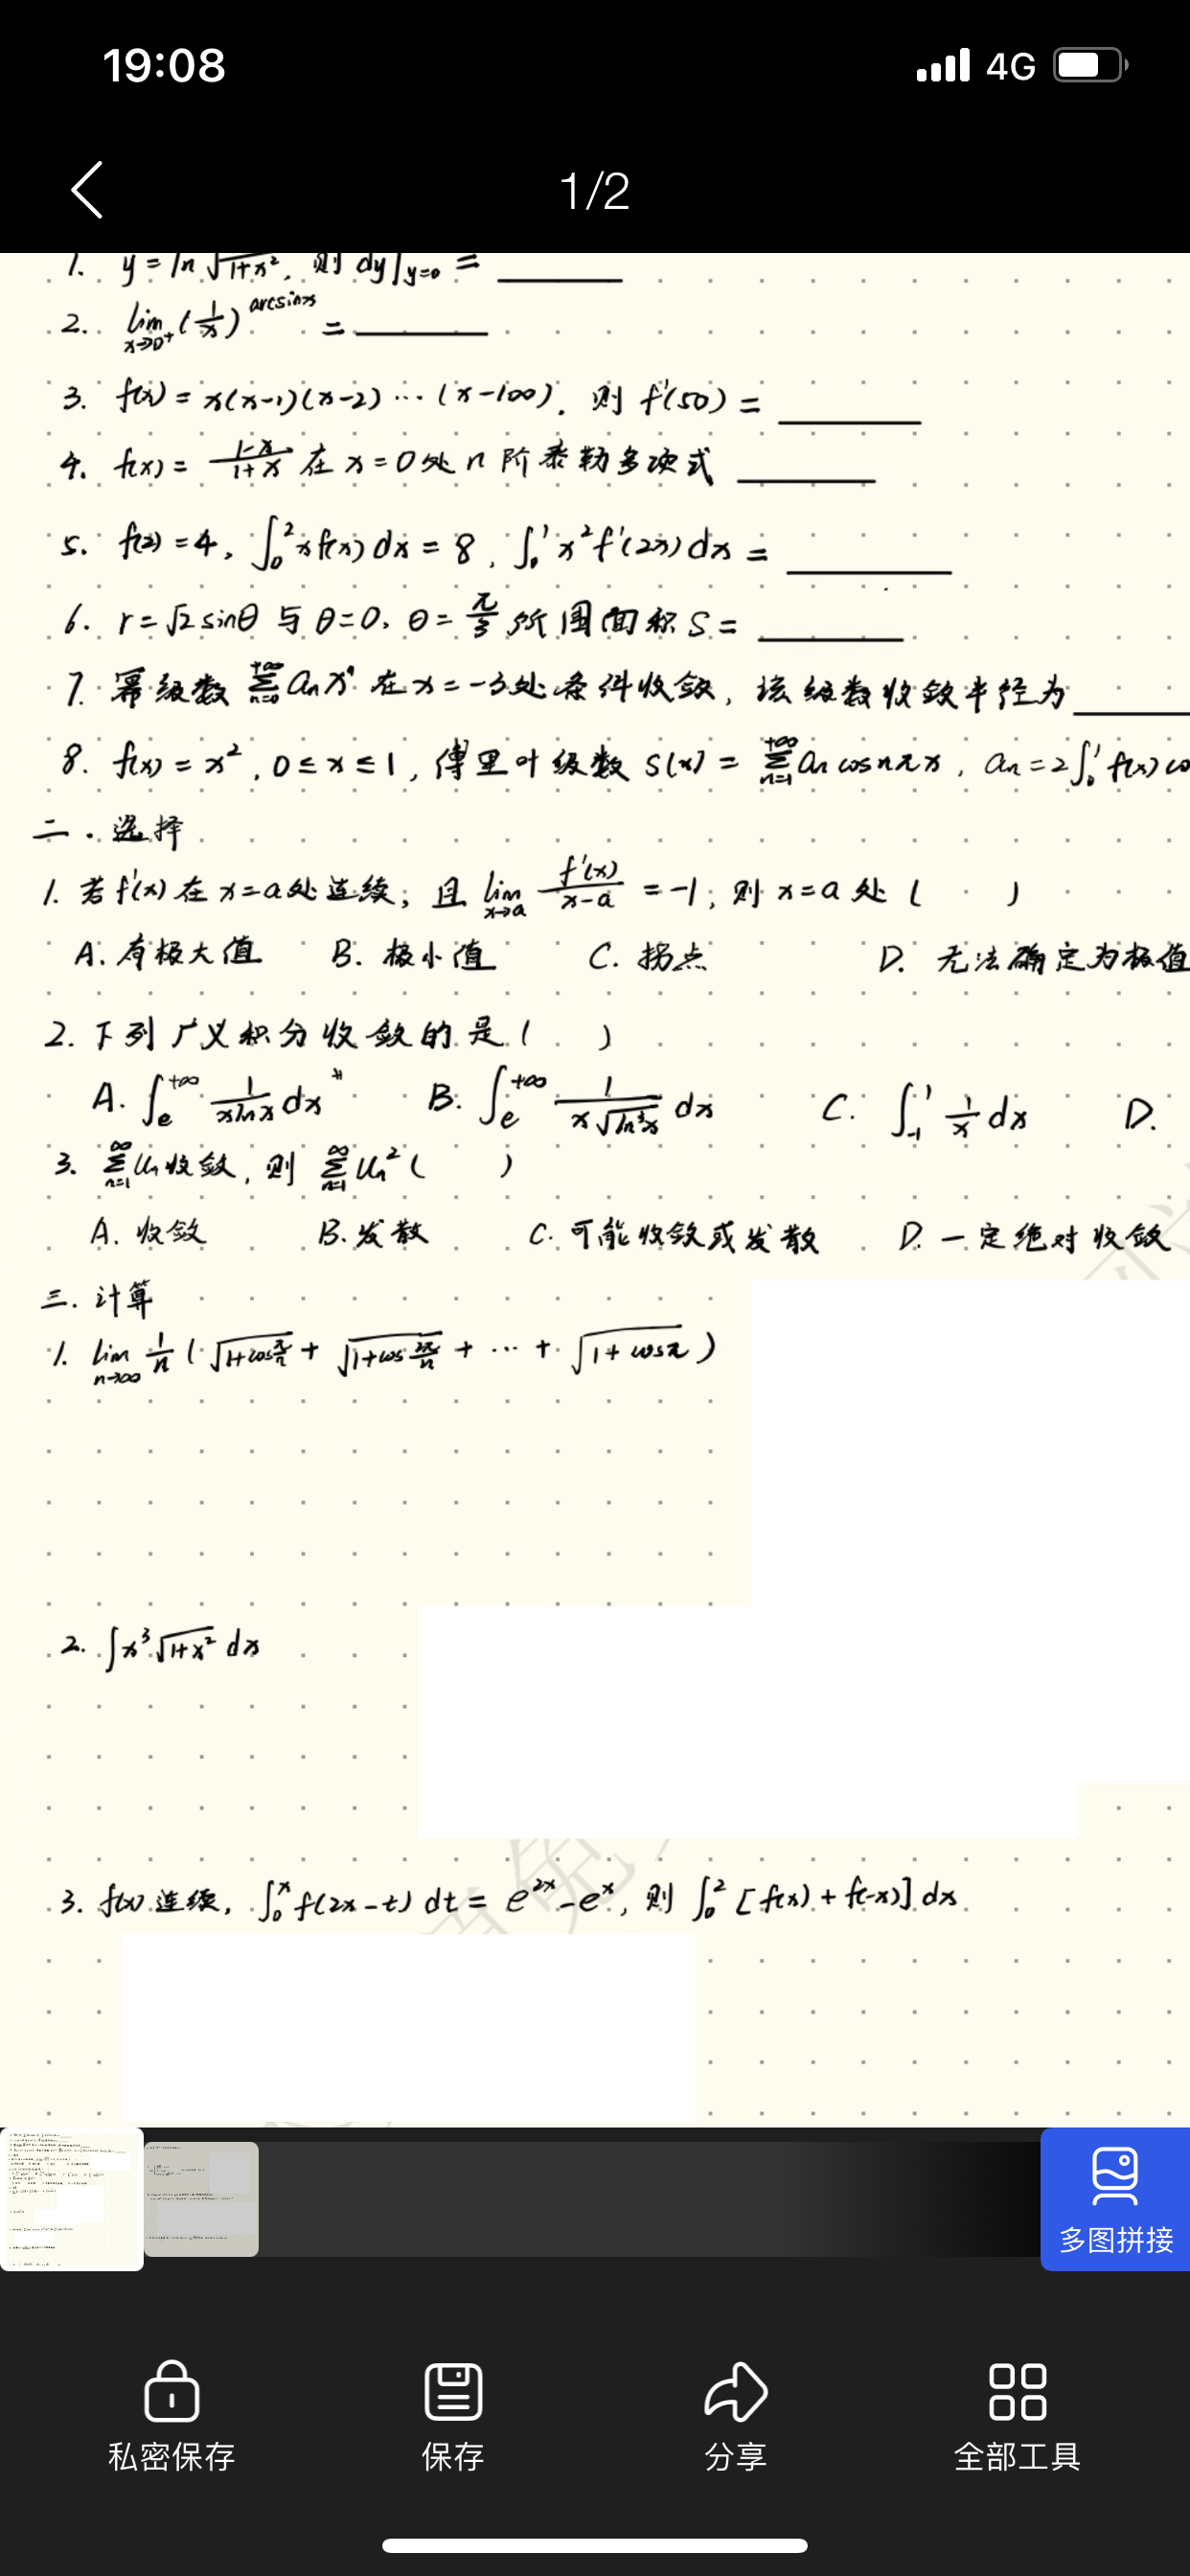 19:08
4G
1/2
1. y = ln √(1+x²), 则 dy|y=0 = ______
2. lim x→0⁺ (1/x)^arcsinx = ______
3. f(x) = x(x-1)(x-2)⋯(x-100). 则 f'(50) = ______
4. f(x) = (1-x)/(1+x) 在 x=0处 n 阶泰勒多项式 ______
5. f(2) = 4, ∫₀² x f(x) dx = 8, ∫₀¹ x² f'(2x) dx = ______
6. r = √2 sinθ 与 θ=0, θ = π/3 所围面积 S = ______
7. 幂级数 ∑n=0^+∞ aₙxⁿ 在 x=-3处条件收敛, 该级数收敛半径为______
8. f(x) = x², 0≤x≤1, 傅里叶级数 S(x) = ∑n=1^+∞ aₙ cosnπx, aₙ = 2∫₀¹ f(x) co
二. 选择
1. 若 f'(x) 在 x=a处连续, 且 lim x→a f'(x)/(x-a) = -1, 则 x=a 处 ( )
A. 有极大值 B. 极小值 C. 拐点 D. 无法确定为极值
2. 下列广义积分收敛的是 ( )
A. ∫e^+∞ 1/(xlnx) dx B. ∫e^+∞ 1/(x√(ln³x)) dx C. ∫₋₁¹ 1/x dx D.
3. ∑n=1^∞ Uₙ收敛, 则 ∑n=1^∞ Uₙ² ( )
A. 收敛 B. 发散 C. 可能收敛或发散 D. 一定绝对收敛
三. 计算
1. lim n→∞ 1/n (√(1+cos π/n) + √(1+cos 2π/n) + ⋯ + √(1+cosπ))
2. ∫x³√(1+x²) dx
3. f(x) 连续, ∫₀ˣ f(2x-t) dt = e²ˣ-eˣ, 则 ∫₀² [f(x)+f(-x)] dx
多图拼接
私密保存 保存 分享 全部工具